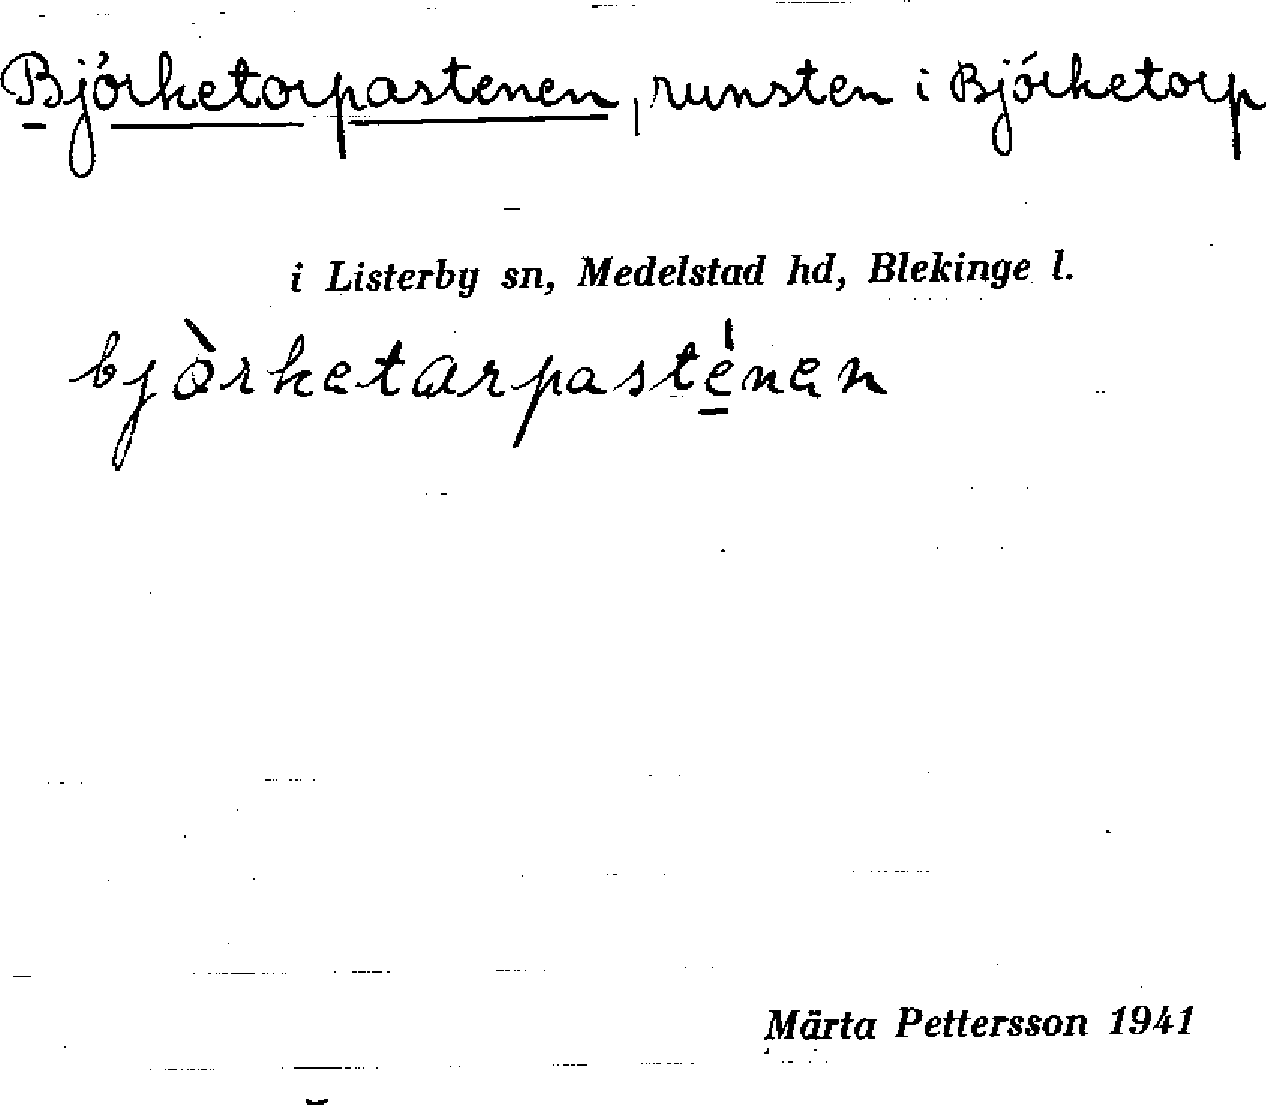 Björketorpastenen, runsten i Björketorp
i Listerby sn, Medelstad hd, Blekinge l.
bjòrketarpasténen
Märta Pettersson 1941